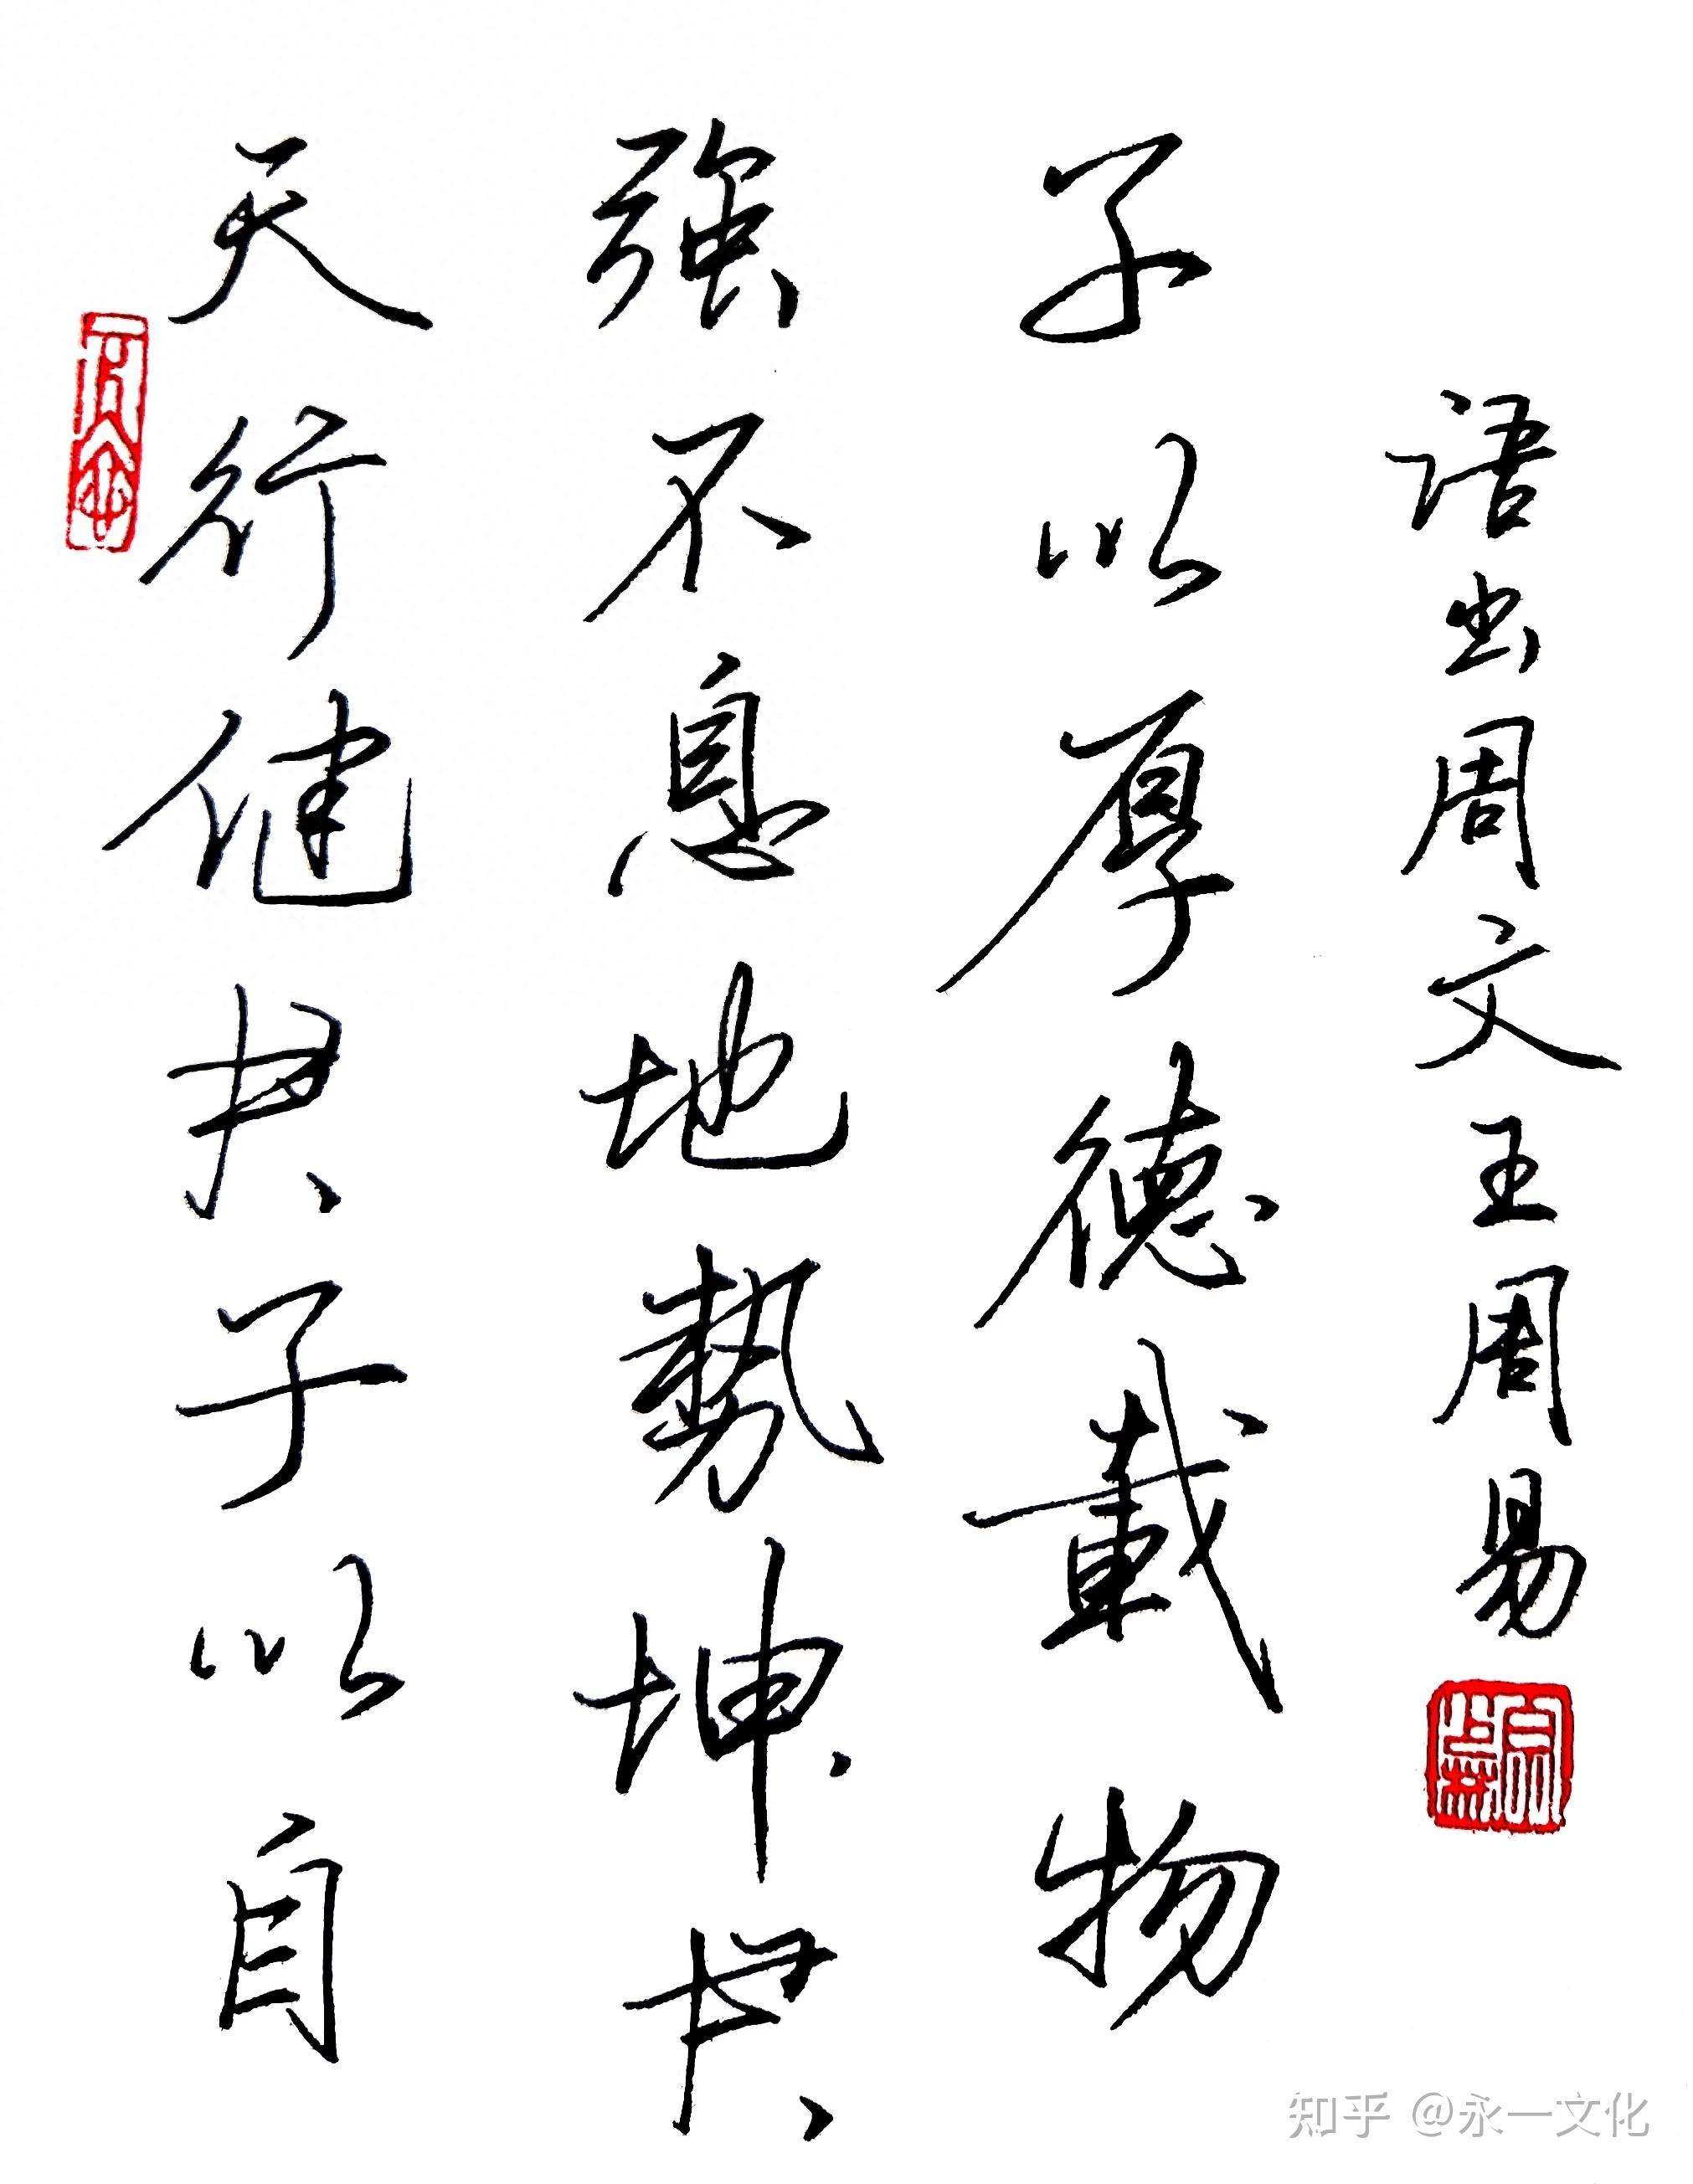 天行健君子以自
强不息地勢坤君
子以厚德載物
语出周文王周易
知乎 @永一文化